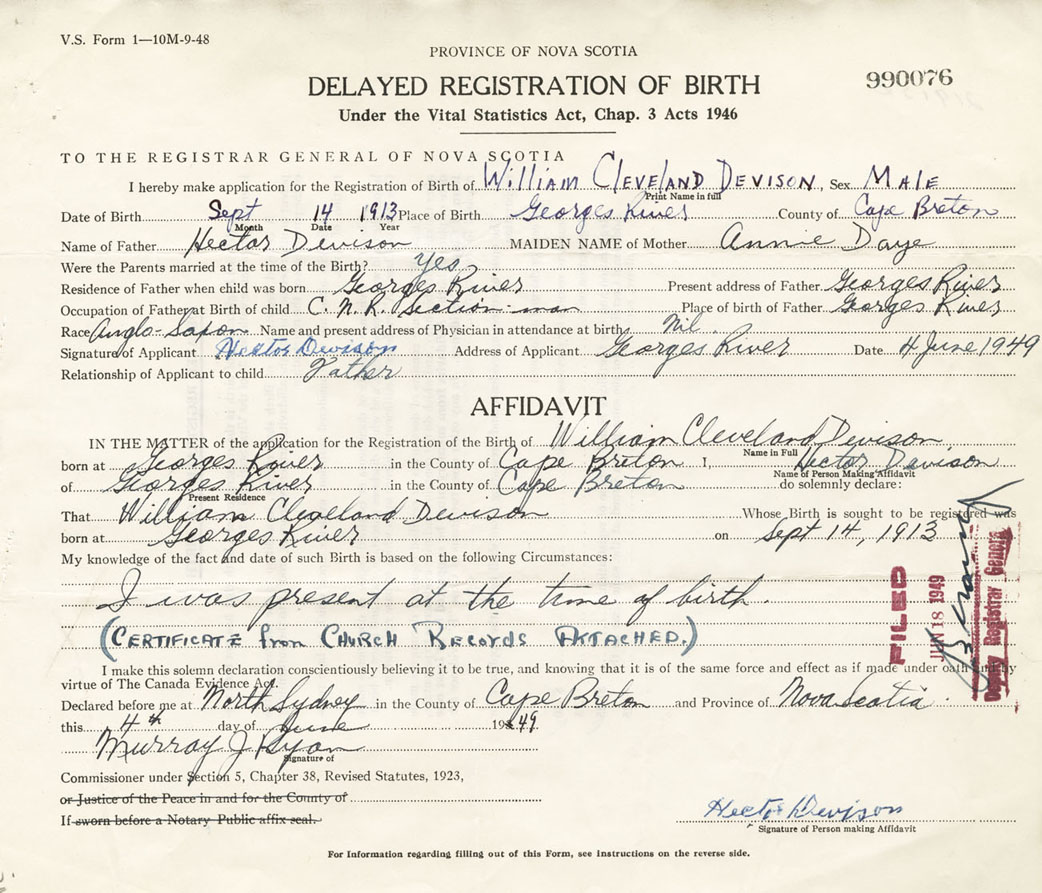 V.S. Form 1—10M-9-48
PROVINCE OF NOVA SCOTIA
DELAYED REGISTRATION OF BIRTH
990076
Under the Vital Statistics Act, Chap. 3 Acts 1946
TO THE REGISTRAR GENERAL OF NOVA SCOTIA
I hereby make application for the Registration of Birth of William Cleveland Devison, Sex Male
Print Name in full
Date of Birth Sept 14 1913 Place of Birth Georges River County of Cape Breton
Month Date Year
Name of Father Hector Devison MAIDEN NAME of Mother Annie Daye
Were the Parents married at the time of the Birth? Yes
Residence of Father when child was born Georges River Present address of Father Georges River
Occupation of Father at Birth of child C. N. R. Section-man Place of birth of Father Georges River
Race Anglo-Saxon Name and present address of Physician in attendance at birth Nil.
Signature of Applicant Hector Devison Address of Applicant Georges River Date 4 June 1949
Relationship of Applicant to child Father
AFFIDAVIT
IN THE MATTER of the application for the Registration of the Birth of William Cleveland Devison
Name in Full
born at Georges River in the County of Cape Breton I, Hector Davison
Name of Person Making Affidavit
of Georges River in the County of Cape Breton do solemnly declare:
Present Residence
That William Cleveland Devison Whose Birth is sought to be registered was
born at Georges River on Sept 14, 1913
My knowledge of the fact and date of such Birth is based on the following Circumstances:
I was present at the time of birth.
(Certificate from Church Records Attached.)
FILED
JUN 18 1949
Deputy Registrar General
I make this solemn declaration conscientiously believing it to be true, and knowing that it is of the same force and effect as if made under oath and by
virtue of The Canada Evidence Act.
Declared before me at North Sydney in the County of Cape Breton and Province of Nova Scotia
this 4th day of June 1949
Murray J Ryan
Signature of
Commissioner under Section 5, Chapter 38, Revised Statutes, 1923,
or Justice of the Peace in and for the County of
If sworn before a Notary Public affix seal.
Hector Devison
Signature of Person making Affidavit
For Information regarding filling out of this Form, see Instructions on the reverse side.